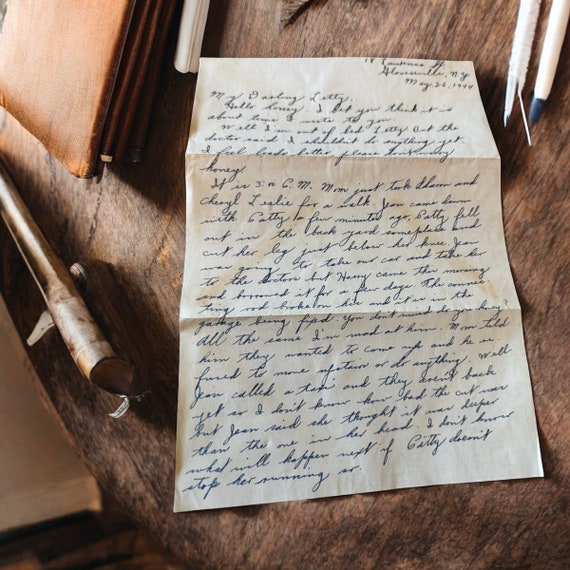 18 Lawrence St.
Gloversville, N.Y.
May 26, 1944
My Darling Letty,
Hello honey, I bet you think it is
about time I wrote to you.
Well I'm out of bed Letty but the
doctor said I shouldn't do anything yet.
I feel loads better, please don't worry
honey.
It is 3:00 P.M. Mom just took Sharon and
Cheryl Leslie for a walk. Jean came down
with Patty a few minutes ago, Patty fell
out in the back yard someplace and
cut her leg just below her knee. Jean
was going to take our car and take her
to the doctor but Harry came this morning
and borrowed it for a few days. The connec
ting rod broke on his and it is in the
garage being fixed. You don't mind do you honey?
All the same I'm mad at him. Mom told
him they wanted to come up and he re
fused to move or do anything. Well
Jean called a taxi and they aren't back
yet so I don't know how bad the cut was
but Jean said she thought it was deeper
than the one in her head. I don't know
what will happen next if Patty doesn't
stop her running so.